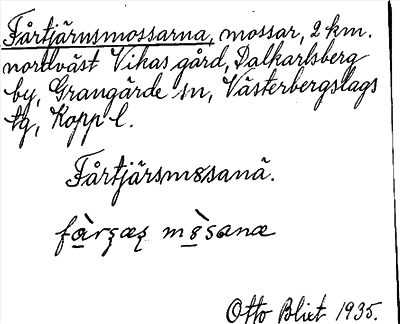 Fårtjärnsmossarna, mossar, 2 km.
nordväst Vikas gård, Dalkarlsberg
by, Grangärde sn, Västerbergslags
tg, Kopp l.
Fårtjärsmosanä.
Otto Blixt 1935.